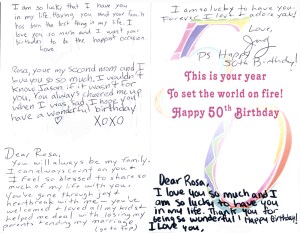 I am so lucky that I have you
in my life. Having you and your family
has been the best thing in my life. I
love you so much and I want your
birthday to be the happiest occasion
love
Rosa, your my second mom and I
love you so so much, I wouldn't
know Jason if it wasn't for
you. You always cheered me up
when I was sad, I hope you
have a wonderful birthday
XOXO
Dear Rosa,
You will always be my family.
I can always count on you.
I feel so blessed to share so
much of my life with you.
You've gone through joy &
heartbreak with me - you've
welcomed & loved all my kids &
helped me deal with losing my
parents & ending my marriage
I am so lucky to have you!
Forever, I love & adore you!
Love,
PS. Happy
50th Birthday!
This is your year
To set the world on fire!
Happy 50th Birthday
Dear Rosa,
I love you so much and I
am so lucky to have you
in my life. Thank you for
being so wonderful! Happy Birthday!
I Love you,